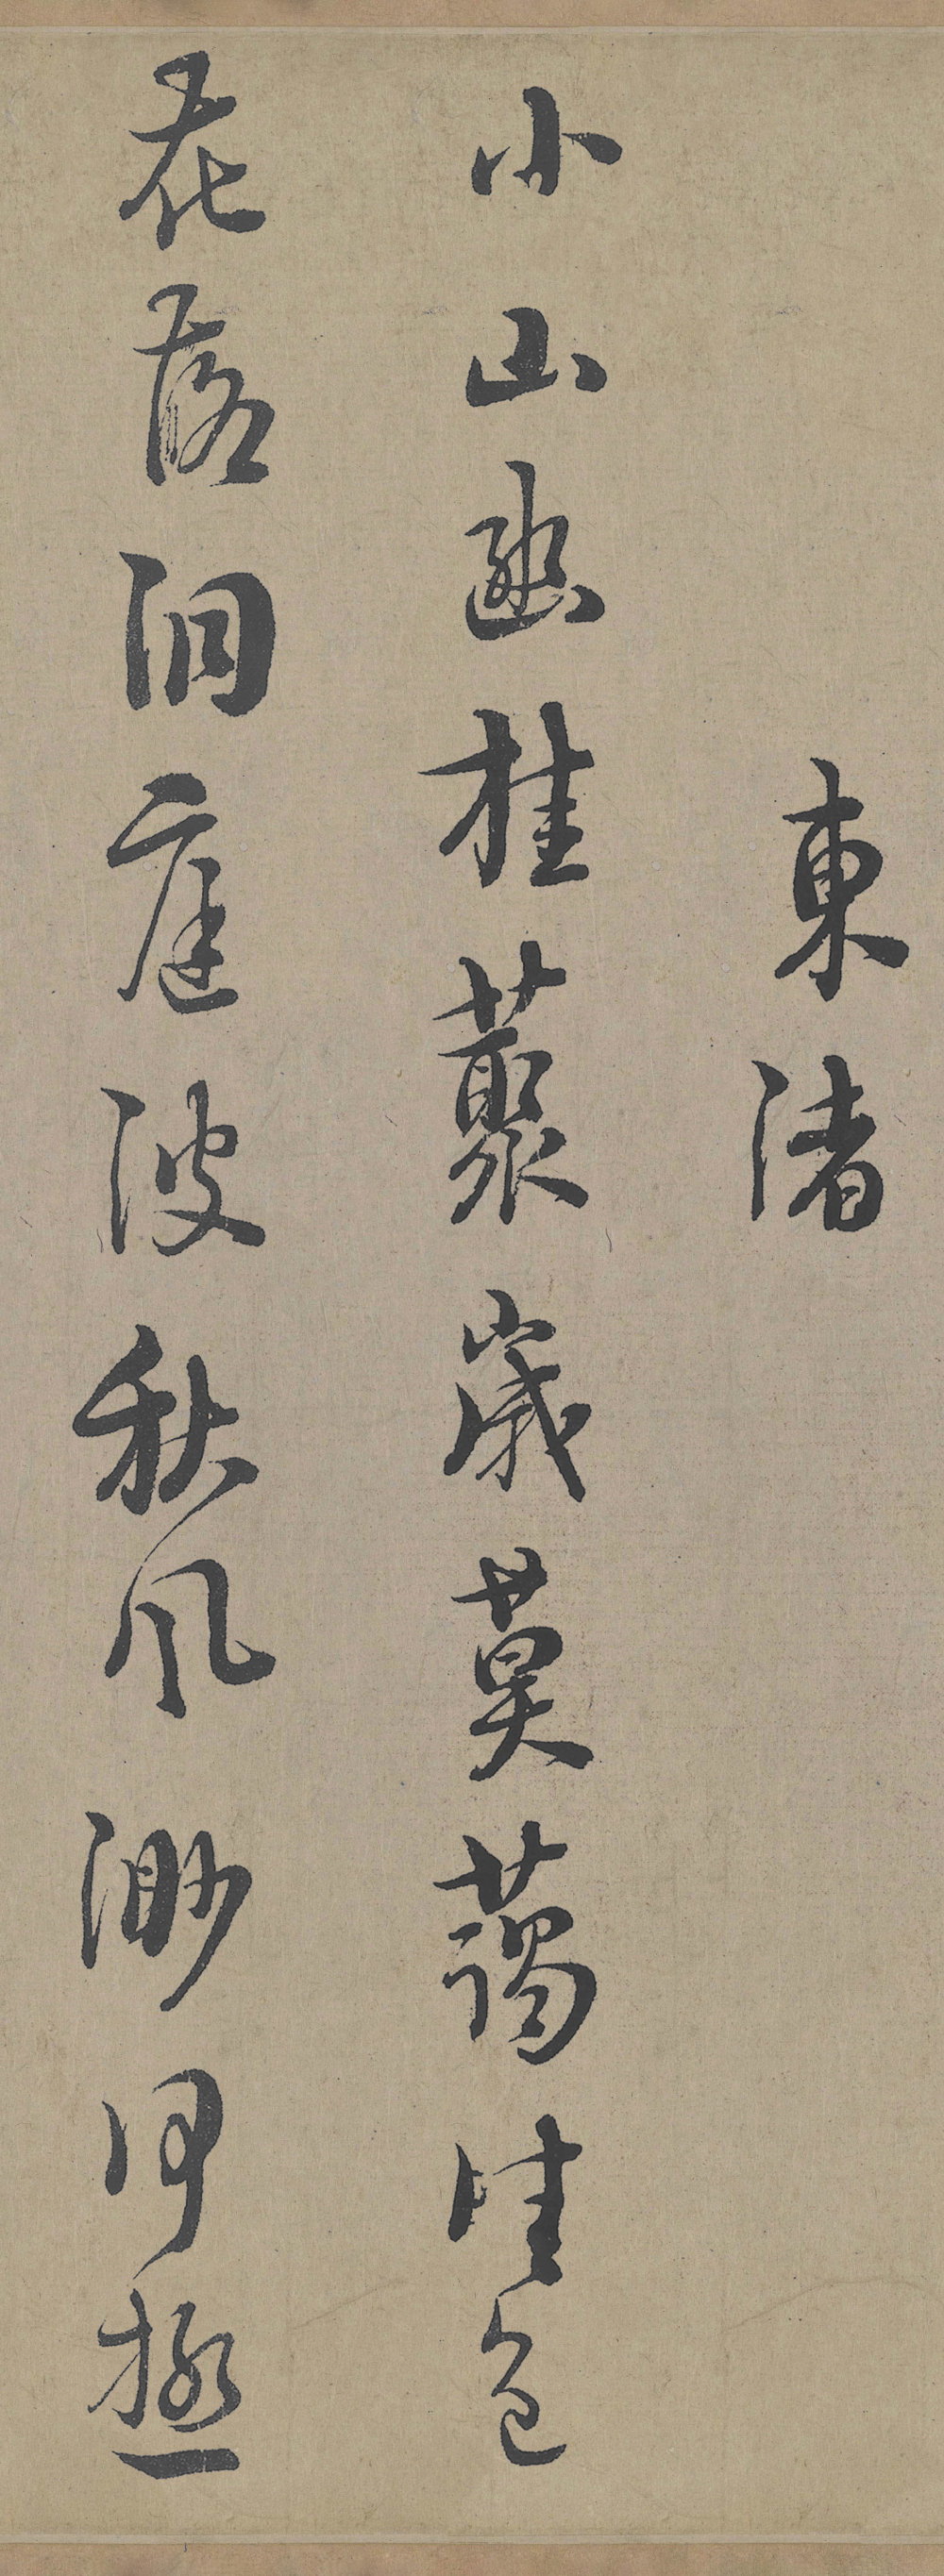 東渚
小山幽桂藂歲莫藹佳色
花落洞庭波秋风渺何極